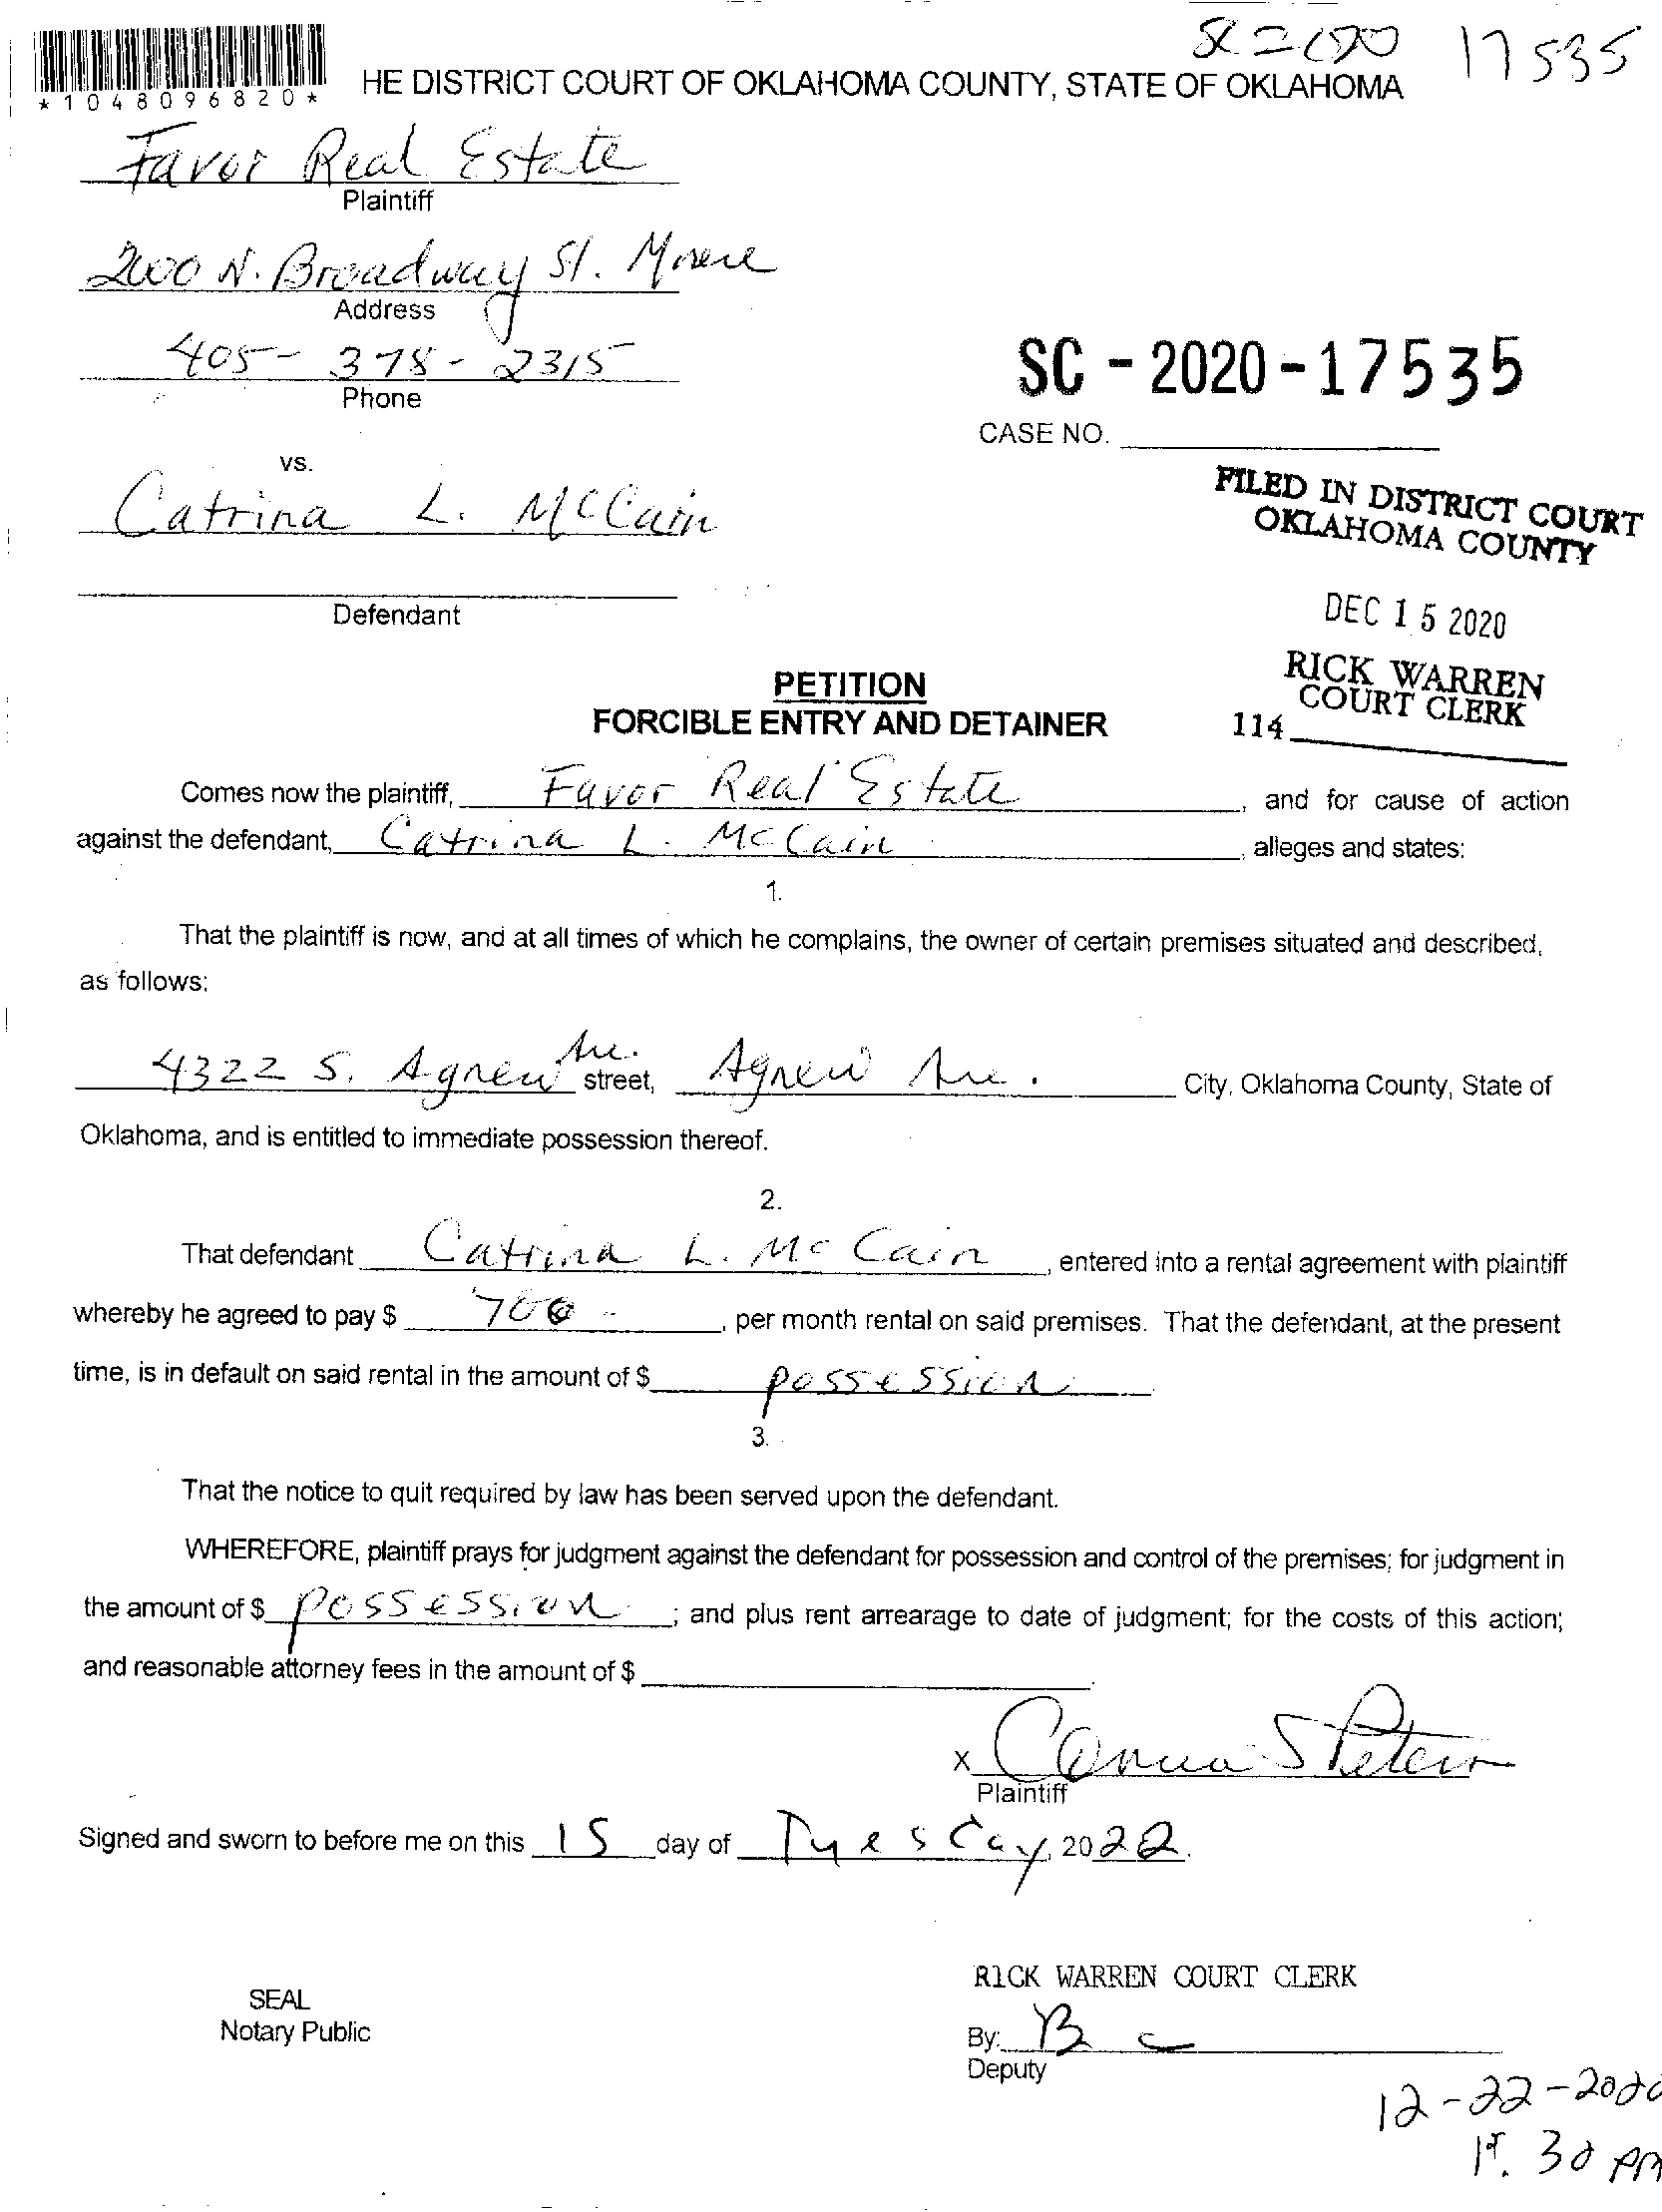 SC 2020 17535
*1048096820*
HE DISTRICT COURT OF OKLAHOMA COUNTY, STATE OF OKLAHOMA
Favor Real Estate
Plaintiff
2600 N. Broadway St. Moore
Address
405-378-2315
Phone
SC-2020-17535
CASE NO.
vs.
Catrina L. McCain
Defendant
FILED IN DISTRICT COURT
OKLAHOMA COUNTY
DEC 15 2020
RICK WARREN
COURT CLERK
114
PETITION
FORCIBLE ENTRY AND DETAINER
Comes now the plaintiff, Favor Real Estate, and for cause of action
against the defendant, Catrina L. McCain, alleges and states:
1.
That the plaintiff is now, and at all times of which he complains, the owner of certain premises situated and described,
as follows:
4322 S. Agnew Ave. street, Agnew Ave. City, Oklahoma County, State of
Oklahoma, and is entitled to immediate possession thereof.
2.
That defendant Catrina L. McCain, entered into a rental agreement with plaintiff
whereby he agreed to pay $ 700-, per month rental on said premises. That the defendant, at the present
time, is in default on said rental in the amount of $ possession
3.
That the notice to quit required by law has been served upon the defendant.
WHEREFORE, plaintiff prays for judgment against the defendant for possession and control of the premises; for judgment in
the amount of $ possession; and plus rent arrearage to date of judgment; for the costs of this action;
and reasonable attorney fees in the amount of $
X
Plaintiff
Signed and sworn to before me on this 15 day of Tuesday, 2020.
SEAL
Notary Public
RICK WARREN COURT CLERK
By:
Deputy
12-22-2020
1:30 PM